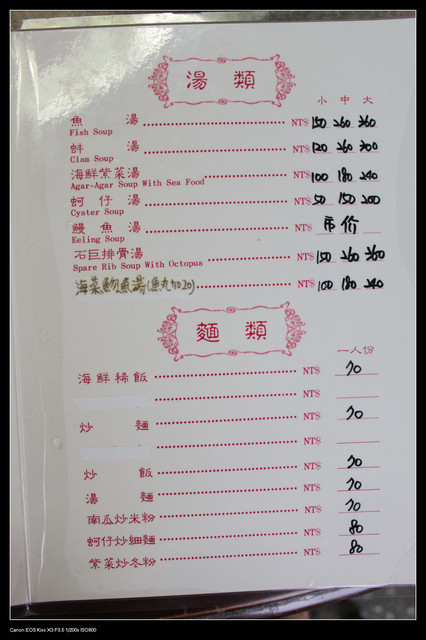 湯類
小 中 大
魚湯 NT$ 150 260 360
Fish Soup
蚌湯 NT$ 120 260 300
Clam Soup
海鮮紫菜湯 NT$ 100 180 240
Agar-Agar Soup With Sea Food
蚵仔湯 NT$ 50 150 200
Cyster Soup
鰻魚湯 NT$ 時价
Eeling Soup
石巨排骨湯 NT$ 150 260 360
Spare Rib Soup With Octopus
海菜魩魚湯(魚丸加20) NT$ 100 180 240
麵類
一人份
海鮮稀飯 NT$ 70
NT$
炒麵 NT$ 70
NT$
炒飯 NT$ 70
湯麵 NT$ 70
南瓜炒米粉 NT$ 70
蚵仔炒細麵 NT$ 80
紫菜炒冬粉 NT$ 80
Canon EOS Kiss X3 F3.5 1/200s ISO800